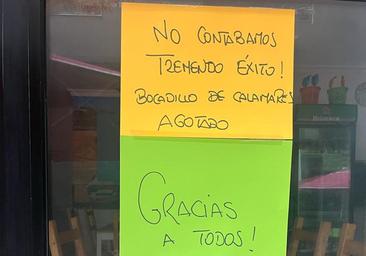 NO CONTABAMOS
TREMENDO ÉXITO!
BOCADILLO DE CALAMARES
AGOTADO
GRACIAS
A TODOS!